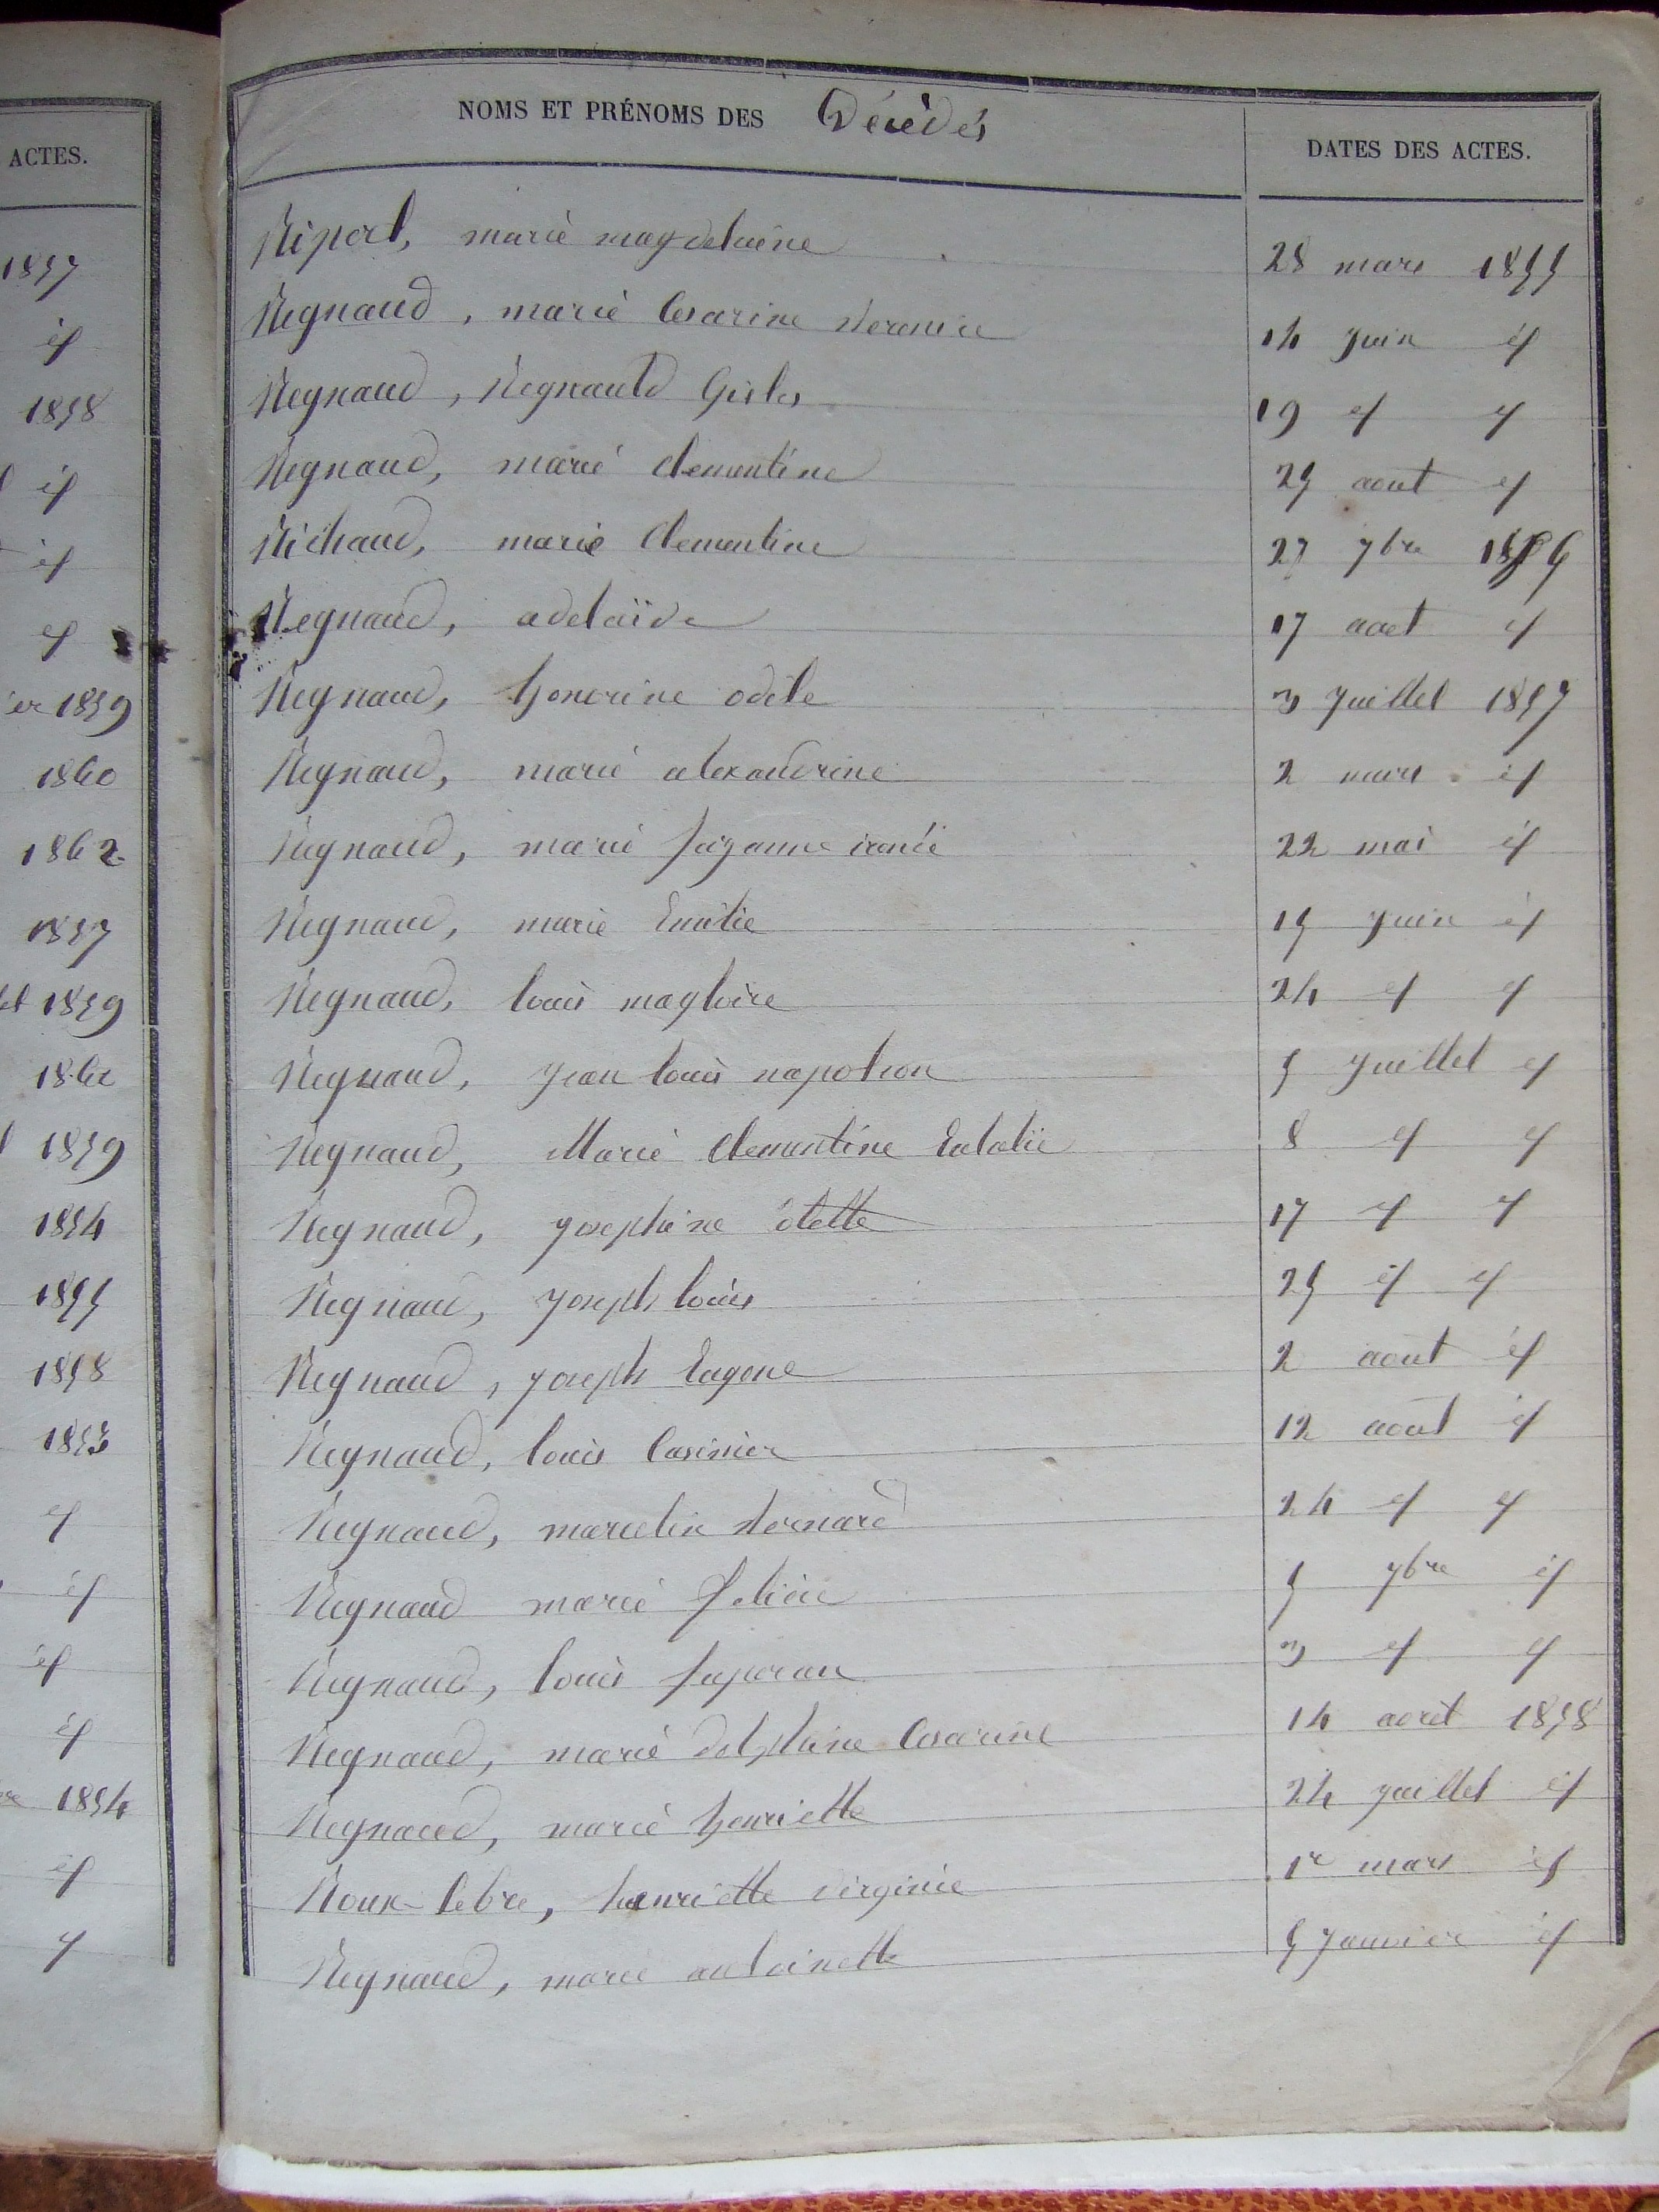 ACTES.
1857
id
1858
id
id
id
er 1859
1860
1862
1857
et 1859
1859
1854
1855
1858
1853
id
id
id
id
re 1854
id
id
NOMS ET PRÉNOMS DES Décédés
DATES DES ACTES.
Ripert, marie magdelaine 28 mars 1855
Regnaud, marie Cesarine 14 juin id
Regnaud, Regnauld 19 id id
Regnaud, marie clementine 25 aout id
Richaud, marie Clementine 27 7bre 1856
Regnaud, adelaïde 17 aout id
Regnaud, honorine odile 3 Juillet 1857
Regnaud, marie alexandrine 2 mars id
Regnaud, marie 22 mai id
Regnaud, marie Emilie 15 juin id
Regnaud, louis magloire 24 id id
Regnaud, jean louis napoleon 5 Juillet id
Regnaud, Marie Clementine Eulalie 8 id id
Regnaud, josephine 17 id id
Regnaud, joseph louis 25 id id
Regnaud, joseph Eugene 2 aout id
Regnaud, louis Casimier 12 aout id
Regnaud, marcelin 24 id id
Regnaud marie felicie 5 7bre id
Regnaud, louis 3 id id
Regnaud, marie delphine Cesarine 14 aout 1858
Regnaud, marie henriette 24 juillet id
Roux-lebre, henriette virginie 1er mars id
Regnaud, marie antoinette 5 Janvier id